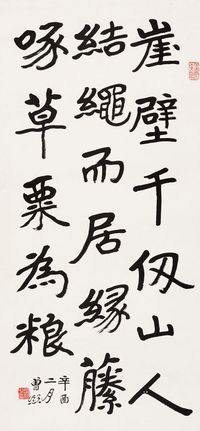 崖壁千仞山人
結繩而居緣藤
啄草粟為粮
辛酉
二月
曾